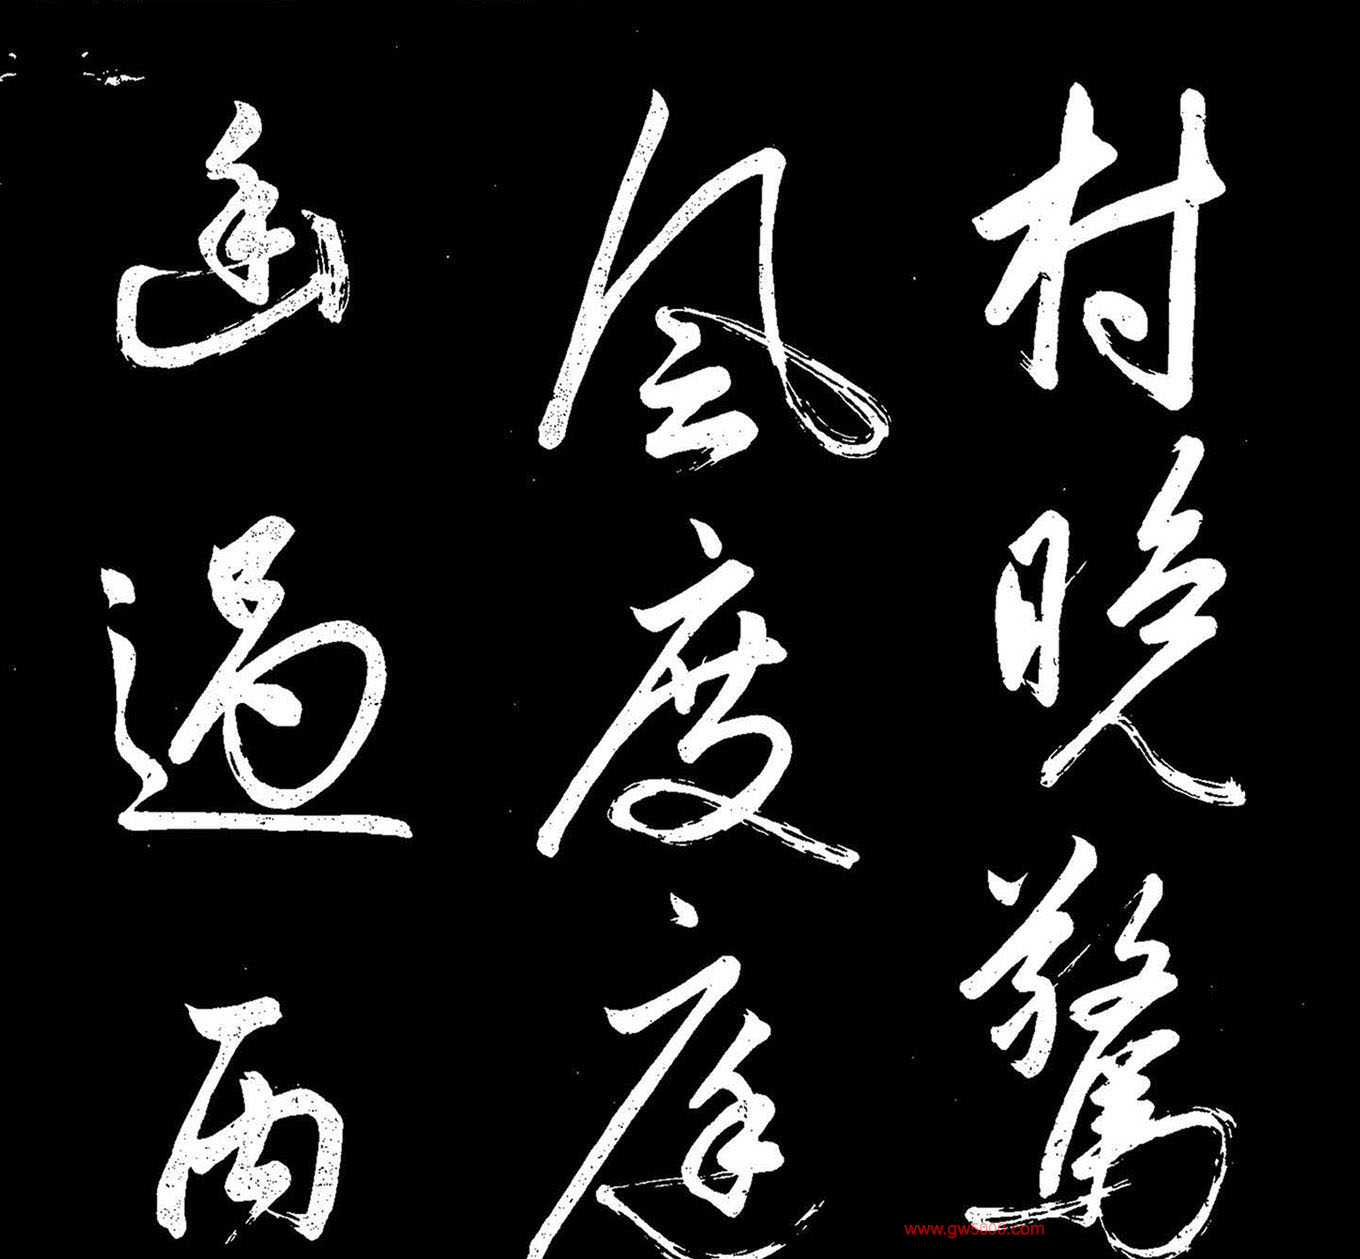 村晚驚
風度庭
幽過雨
www.gw5000.com